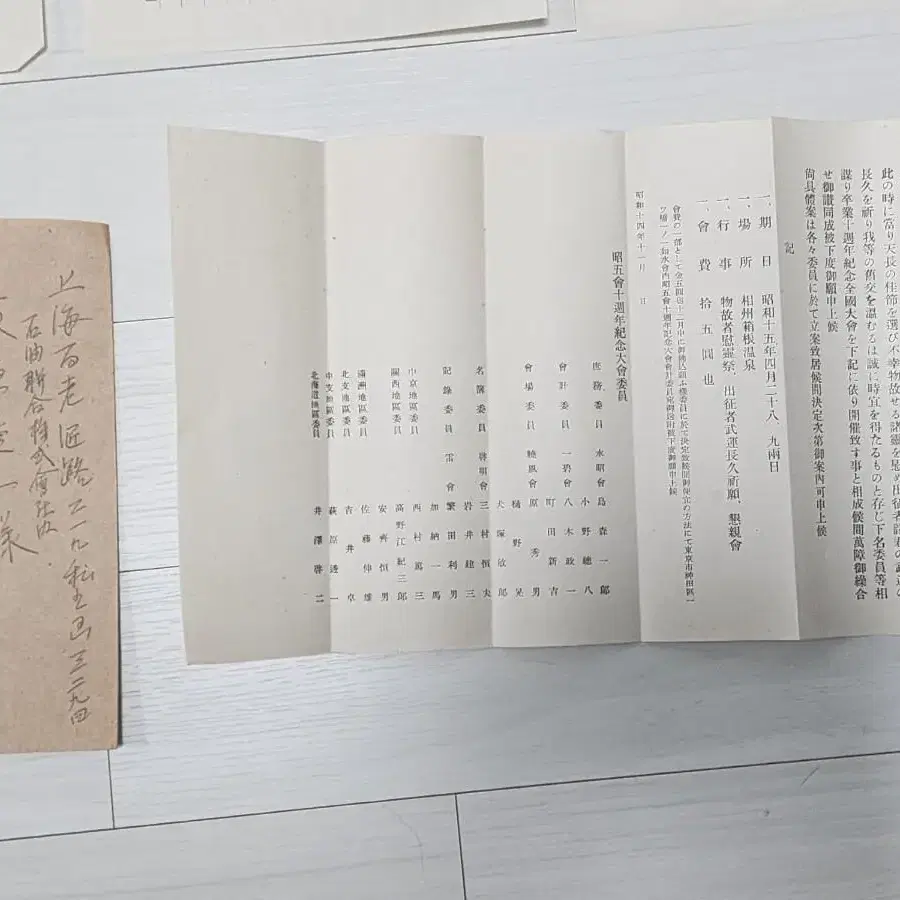 此の時に當り天長の佳節を選び不幸物故せる諸靈を慰め出征者諸君の武運の
長久を祈り我等の舊交を温むるは誠に時宜を得たるものと存じ下名委員等相
謀り卒業十週年紀念全國大會を下記に依り開催致す事と相成候間萬障御繰合
せ御讃同成被下度御願申上候
尙具體案は各々委員に於て立案致居候間決定次第御案內可申上候
記
一、期日 昭和十五年四月二十八、九兩日
一、場所 相州箱根温泉
一、行事 物故者慰靈祭、出征者武運長久祈願、懇親會
一、會費 拾五圓也
會費の一部として金五圓也十二月中に御拂込願ふ
昭和十四年十一月 日
昭五會十週年紀念大會委員
庶務委員 水昭會 島森一郎
小野總八
會計委員 一礽會 八木政一
町田新吉
會場委員 曉風會 原秀男
樋野晃
犬塚敏郎
名簿委員 啓明會 三村恒夫
岩井建三
記錄委員 雷會 繁田利男
西村萬三
中京地區委員 加納一馬
關西地區委員 高野江紀三郎
安齊恒男
滿洲地區委員 佐藤伸雄
北支地區委員 吉井卓
中支地區委員 萩原透一
北海道地區委員 井澤啓二
上海百老匯路二一九松
石油聯合株式會社內
一様